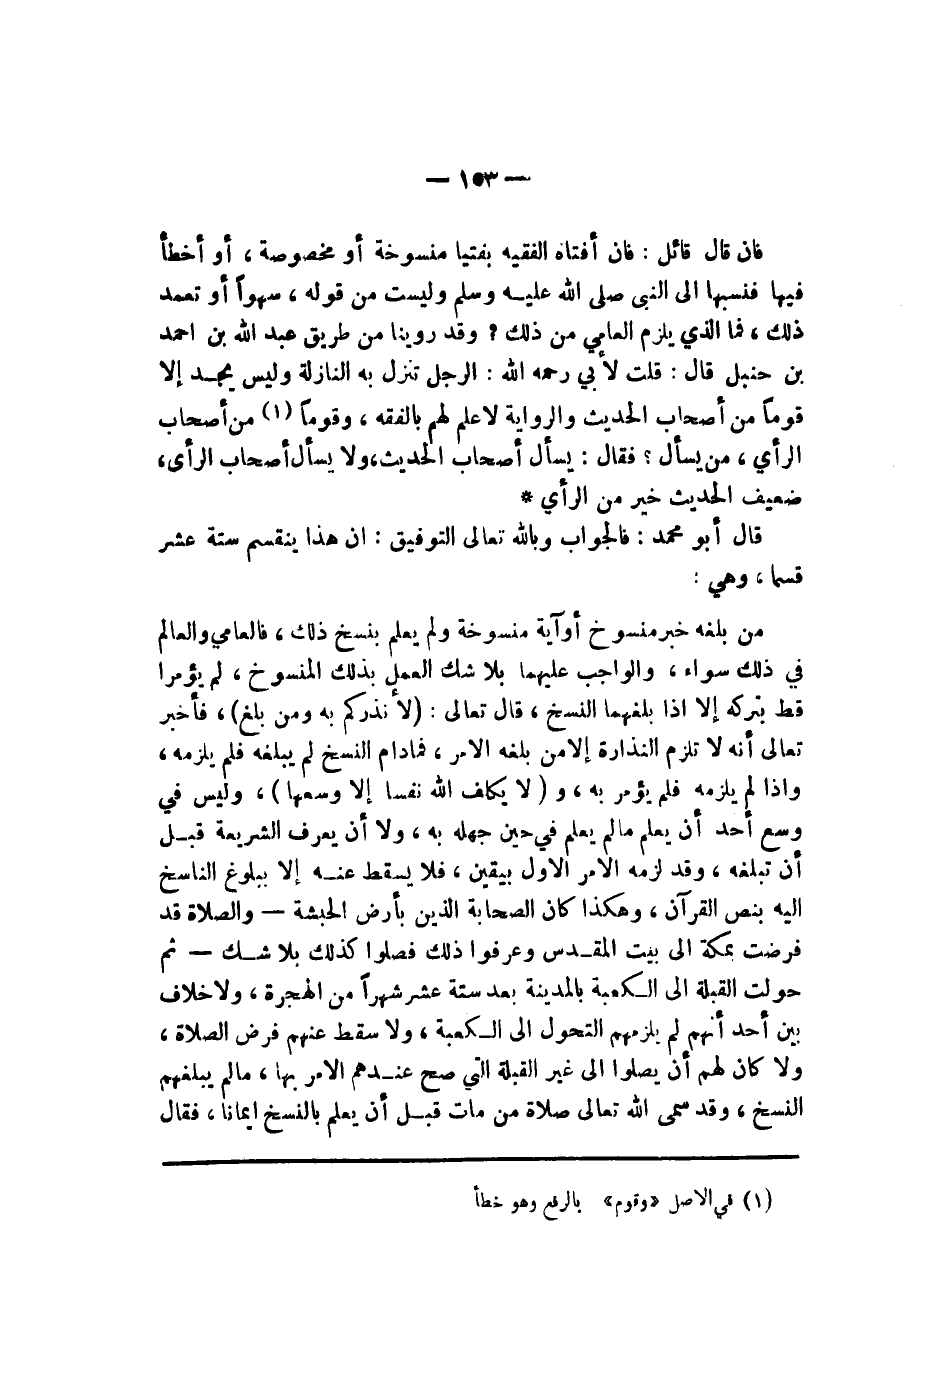 — ١٥٣ —
فان قال قائل : فان أفتاه الفقيه بفتيا منسوخة أو مخصوصة ، أو أخطأ
فيها فنسبها الى النبى صلى الله عليه وسلم وليست من قوله ، سهواً أو تعمد
ذلك ، فما الذي يلزم العامي من ذلك ؟ وقد روينا من طريق عبد الله بن احمد
بن حنبل قال : قلت لأبي رحمه الله : الرجل تنزل به النازلة وليس يجد إلا
قوماً من أصحاب الحديث والرواية لاعلم لهم بالفقه ، وقوماً (١) من أصحاب
الرأي ، من يسأل ؟ فقال : يسأل أصحاب الحديث، ولا يسأل أصحاب الرأى،
ضعيف الحديث خير من الرأي *
قال أبو محمد : فالجواب وبالله تعالى التوفيق : ان هذا ينقسم ستة عشر
قسما ، وهي :
من بلغه خبر منسوخ أو آية منسوخة ولم يعلم بنسخ ذلك ، فالعامي والعالم
في ذلك سواء ، والواجب عليهما بلا شك العمل بذلك المنسوخ ، لم يؤمرا
قط بتركه إلا اذا بلغهما النسخ ، قال تعالى : (لأنذركم به ومن بلغ) ، فأخبر
تعالى أنه لا تلزم النذارة إلا من بلغه الامر ، فمادام النسخ لم يبلغه فلم يلزمه ،
واذا لم يلزمه فلم يؤمر به ، و ( لا يكلف الله نفسا إلا وسعها ) ، وليس في
وسع أحد أن يعلم مالم يعلم في حين جهله به ، ولا أن يعرف الشريعة قبل
أن تبلغه ، وقد لزمه الامر الاول بيقين ، فلا يسقط عنه إلا ببلوغ الناسخ
اليه بنص القرآن ، وهكذا كان الصحابة الذين بأرض الحبشة — والصلاة قد
فرضت بمكة الى بيت المقدس وعرفوا ذلك فصلوا كذلك بلا شك — ثم
حولت القبلة الى الكعبة بالمدينة بعد ستة عشر شهراً من الهجرة ، ولاخلاف
بين أحد أنهم لم يلزمهم التحول الى الكعبة ، ولا سقط عنهم فرض الصلاة ،
ولا كان لهم أن يصلوا الى غير القبلة التي صح عندهم الامر بها ، مالم يبلغهم
النسخ ، وقد سمى الله تعالى صلاة من مات قبل أن يعلم بالنسخ ايمانا ، فقال
(١) في الاصل «وقوم» بالرفع وهو خطأ